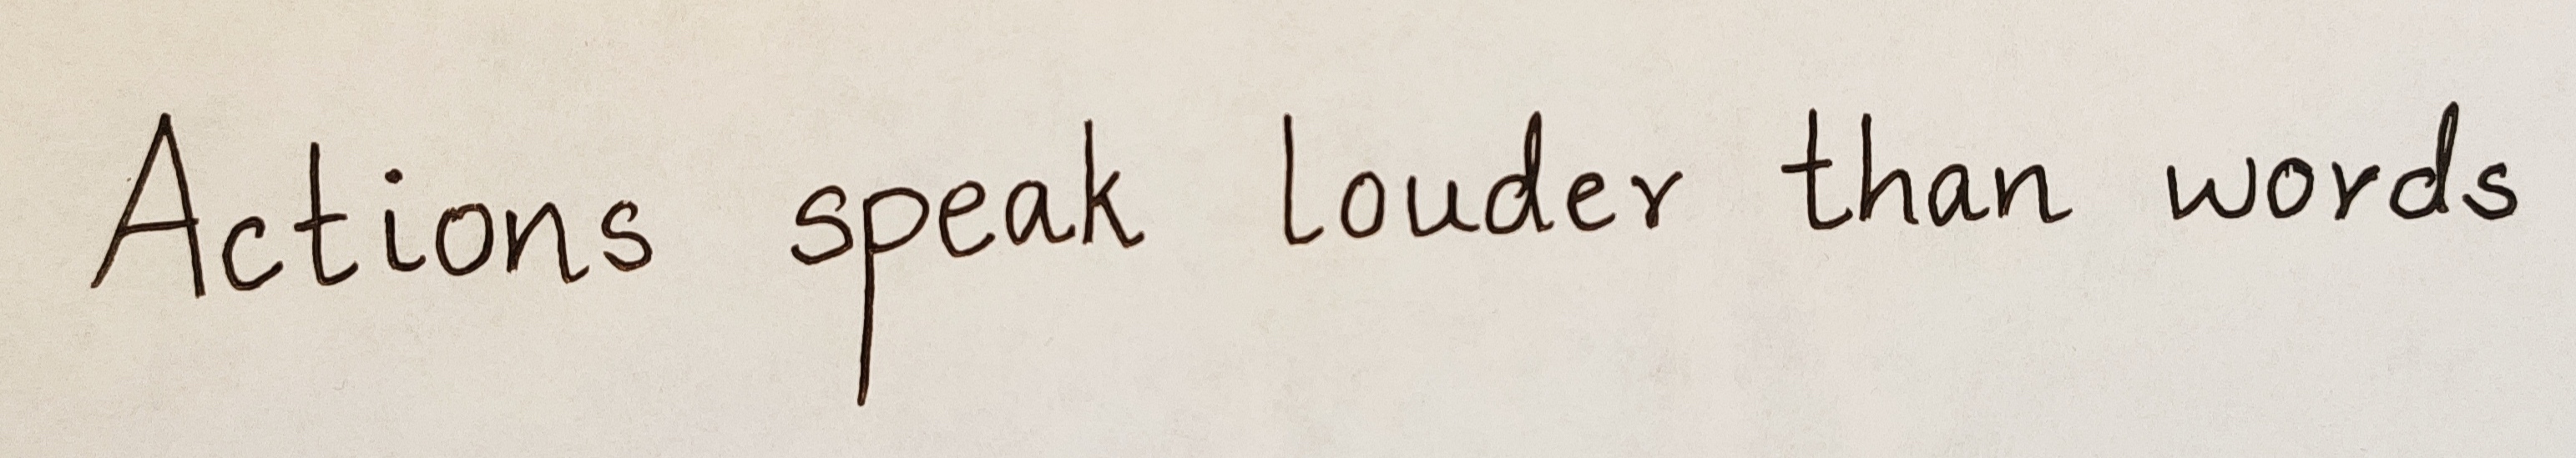 Actions speak louder than words